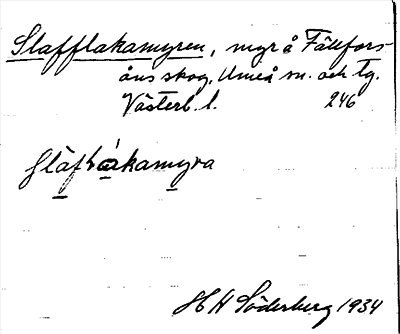 Slafflakamyren, myr å Fällfors-
åns skog, Umeå sn. och tg.
Västerb. l. 246
Gläfhákamyra
H H Söderberg 1934